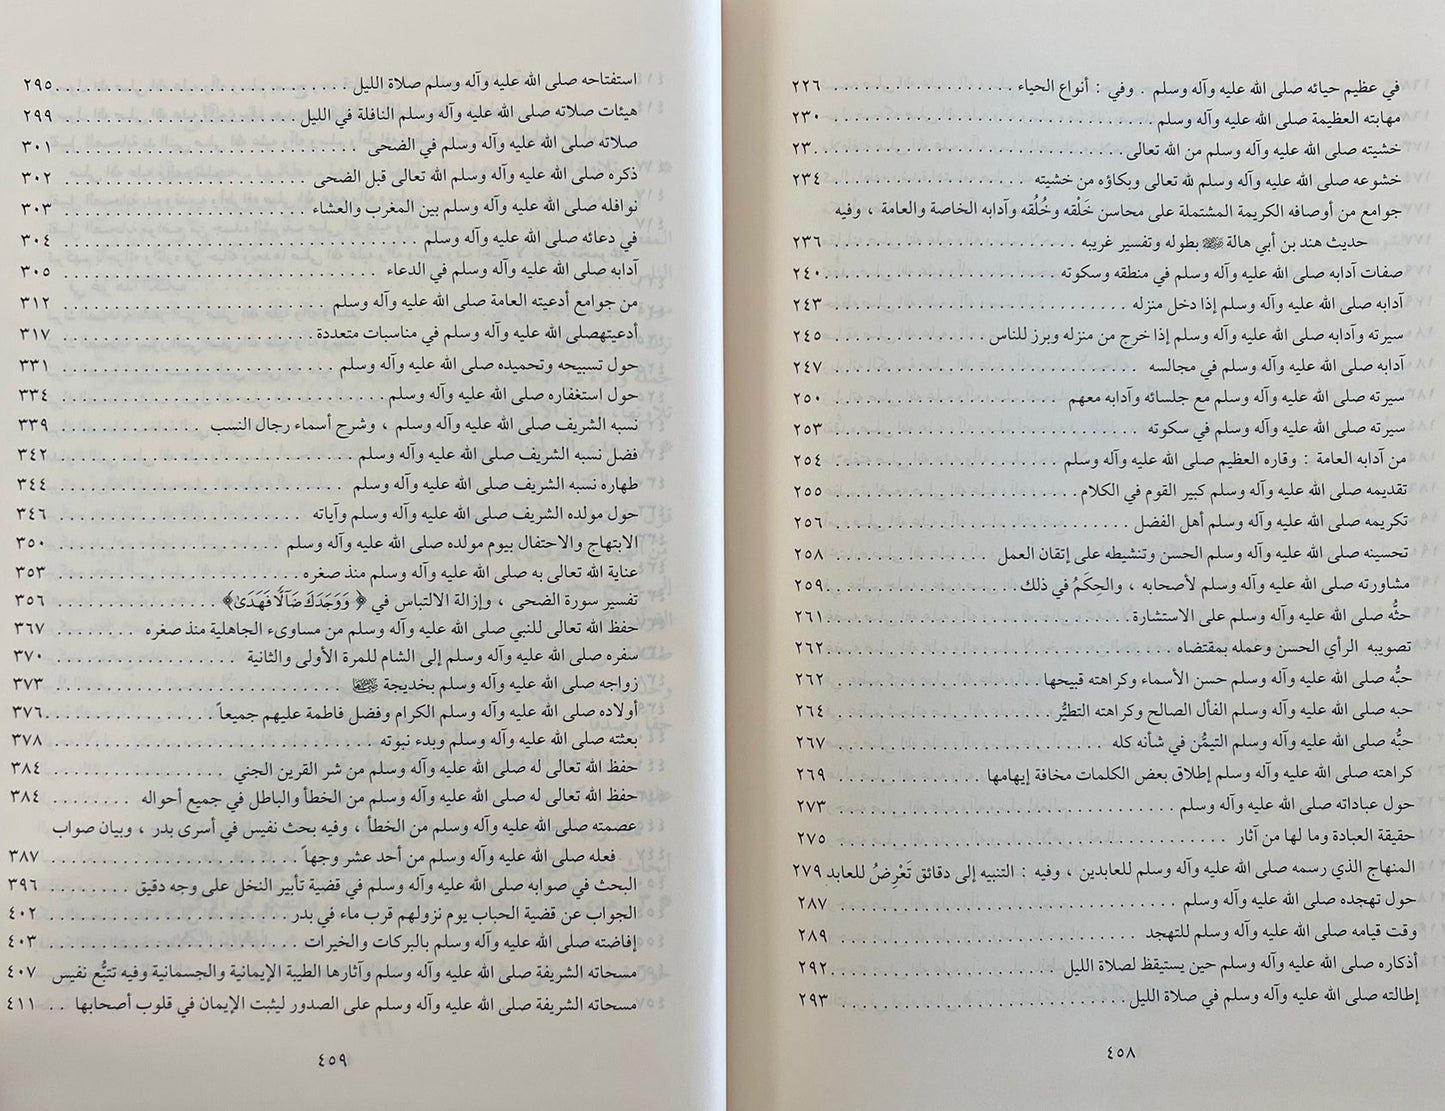 في عظيم حيائه صلى الله عليه وآله وسلم . وفي : أنواع الحياء . . . . . . . . . . . . . . . . . . ٢٢٦
مهابته العظيمة صلى الله عليه وآله وسلم . . . . . . . . . . . . . . . . . . ٢٣٠
خشيته صلى الله عليه وآله وسلم من الله تعالى . . . . . . . . . . . . . . . . . . ٢٣٠
خشوعه صلى الله عليه وآله وسلم لله تعالى وبكاؤه من خشيته . . . . . . . . . . . . . . . . . . ٢٣٤
جوامع من أوصافه الكريمة المشتملة على محاسن خَلْقه وخُلُقه وآدابه الخاصة والعامة ، وفيه
حديث هند بن أبي هالة بطوله وتفسير غريبه . . . . . . . . . . . . . . . . . . ٢٣٦
صفات آدابه صلى الله عليه وآله وسلم في منطقه وسكوته . . . . . . . . . . . . . . . . . . ٢٤٠
آدابه صلى الله عليه وآله وسلم إذا دخل منزله . . . . . . . . . . . . . . . . . . ٢٤٣
سيرته وآدابه صلى الله عليه وآله وسلم إذا خرج من منزله وبرز للناس . . . . . . . . . . . . . . ٢٤٥
آدابه صلى الله عليه وآله وسلم في مجالسه . . . . . . . . . . . . . . . . . . ٢٤٧
سيرته صلى الله عليه وآله وسلم مع جلسائه وآدابه معهم . . . . . . . . . . . . . . . . . . ٢٥٠
سيرته صلى الله عليه وآله وسلم في سكوته . . . . . . . . . . . . . . . . . . ٢٥٣
من آدابه العامة : وقاره العظيم صلى الله عليه وآله وسلم . . . . . . . . . . . . . . . . . . ٢٥٤
تقديمه صلى الله عليه وآله وسلم كبير القوم في الكلام . . . . . . . . . . . . . . . . . . ٢٥٥
تكريمه صلى الله عليه وآله وسلم أهل الفضل . . . . . . . . . . . . . . . . . . ٢٥٦
تحسينه صلى الله عليه وآله وسلم الحسن وتنشيطه على إتقان العمل . . . . . . . . . . . . . . ٢٥٨
مشاورته صلى الله عليه وآله وسلم لأصحابه ، والحِكَمُ في ذلك . . . . . . . . . . . . . . . . ٢٥٩
حثُّه صلى الله عليه وآله وسلم على الاستشارة . . . . . . . . . . . . . . . . . . ٢٦١
تصويبه الرأي الحسن وعمله بمقتضاه . . . . . . . . . . . . . . . . . . ٢٦٢
حبُّه صلى الله عليه وآله وسلم حسن الأسماء وكراهته قبيحها . . . . . . . . . . . . . . . . . . ٢٦٢
حبه صلى الله عليه وآله وسلم الفأل الصالح وكراهته التطيُّر . . . . . . . . . . . . . . . . . . ٢٦٤
حبُّه صلى الله عليه وآله وسلم التيمُّن في شأنه كله . . . . . . . . . . . . . . . . . . ٢٦٧
كراهته صلى الله عليه وآله وسلم إطلاق بعض الكلمات مخافة إيهامها . . . . . . . . . . . . . . ٢٦٩
حول عباداته صلى الله عليه وآله وسلم . . . . . . . . . . . . . . . . . . ٢٧٣
حقيقة العبادة وما لها من آثار . . . . . . . . . . . . . . . . . . ٢٧٥
المنهاج الذي رسمه صلى الله عليه وآله وسلم للعابدين ، وفيه : التنبيه إلى دقائق تَعْرِضُ للعابد ٢٧٩
حول تهجده صلى الله عليه وآله وسلم . . . . . . . . . . . . . . . . . . ٢٨٧
وقت قيامه صلى الله عليه وآله وسلم للتهجد . . . . . . . . . . . . . . . . . . ٢٨٩
أذكاره صلى الله عليه وآله وسلم حين يستيقظ لصلاة الليل . . . . . . . . . . . . . . . . . . ٢٩٢
إطالته صلى الله عليه وآله وسلم في صلاة الليل . . . . . . . . . . . . . . . . . . ٢٩٣
٤٥٨
استفتاحه صلى الله عليه وآله وسلم صلاة الليل . . . . . . . . . . . . . . . . . . ٢٩٥
هيئات صلاته صلى الله عليه وآله وسلم النافلة في الليل . . . . . . . . . . . . . . . . . . ٢٩٩
صلاته صلى الله عليه وآله وسلم في الضحى . . . . . . . . . . . . . . . . . . ٣٠١
ذكره صلى الله عليه وآله وسلم الله تعالى قبل الضحى . . . . . . . . . . . . . . . . . . ٣٠٢
نوافله صلى الله عليه وآله وسلم بين المغرب والعشاء . . . . . . . . . . . . . . . . . . ٣٠٣
في دعائه صلى الله عليه وآله وسلم . . . . . . . . . . . . . . . . . . ٣٠٤
آدابه صلى الله عليه وآله وسلم في الدعاء . . . . . . . . . . . . . . . . . . ٣٠٥
من جوامع أدعيته العامة صلى الله عليه وآله وسلم . . . . . . . . . . . . . . . . . . ٣١٢
أدعيتهصلى الله عليه وآله وسلم في مناسبات متعددة . . . . . . . . . . . . . . . . . . ٣١٧
حول تسبيحه وتحميده صلى الله عليه وآله وسلم . . . . . . . . . . . . . . . . . . ٣٣١
حول استغفاره صلى الله عليه وآله وسلم . . . . . . . . . . . . . . . . . . ٣٣٤
نسبه الشريف صلى الله عليه وآله وسلم ، وشرح أسماء رجال النسب . . . . . . . . . . . . . . ٣٣٩
فضل نسبه الشريف صلى الله عليه وآله وسلم . . . . . . . . . . . . . . . . . . ٣٤٢
طهاره نسبه الشريف صلى الله عليه وآله وسلم . . . . . . . . . . . . . . . . . . ٣٤٤
حول مولده الشريف صلى الله عليه وآله وسلم وآياته . . . . . . . . . . . . . . . . . . ٣٤٦
الابتهاج والاحتفال بيوم مولده صلى الله عليه وآله وسلم . . . . . . . . . . . . . . . . . . ٣٥٠
عناية الله تعالى به صلى الله عليه وآله وسلم منذ صغره . . . . . . . . . . . . . . . . . . ٣٥٣
تفسير سورة الضحى ، وإزالة الالتباس في ﴿ وَوَجَدَكَ ضَآلًّا فَهَدَىٰ﴾ . . . . . . . . . . . . . . ٣٥٦
حفظ الله تعالى للنبي صلى الله عليه وآله وسلم من مساوىء الجاهلية منذ صغره . . . . . . . . ٣٦٧
سفره صلى الله عليه وآله وسلم إلى الشام للمرة الأولى والثانية . . . . . . . . . . . . . . . . ٣٧٠
زواجه صلى الله عليه وآله وسلم بخديجة . . . . . . . . . . . . . . . . . . ٣٧٣
أولاده صلى الله عليه وآله وسلم الكرام وفضل فاطمة عليهم جميعاً . . . . . . . . . . . . . . ٣٧٦
بعثته صلى الله عليه وآله وسلم وبدء نبوته . . . . . . . . . . . . . . . . . . ٣٧٨
حفظ الله تعالى له صلى الله عليه وآله وسلم من شر القرين الجني . . . . . . . . . . . . . . ٣٨٤
حفظ الله تعالى له صلى الله عليه وآله وسلم من الخطأ والباطل في جميع أحواله . . . . . . . . ٣٨٤
عصمته صلى الله عليه وآله وسلم من الخطأ ، وفيه بحث نفيس في أسرى بدر ، وبيان صواب
فعله صلى الله عليه وآله وسلم من أحد عشر وجهاً . . . . . . . . . . . . . . . . . . ٣٨٧
البحث في صوابه صلى الله عليه وآله وسلم في قضية تأبير النخل على وجه دقيق . . . . . . . . ٣٩٦
الجواب عن قضية الحباب يوم نزولهم قرب ماء في بدر . . . . . . . . . . . . . . . . . . ٤٠٢
إفاضته صلى الله عليه وآله وسلم بالبركات والخيرات . . . . . . . . . . . . . . . . . . ٤٠٣
مسحاته الشريفة صلى الله عليه وآله وسلم وآثارها الطيبة الإيمانية والجسمانية وفيه تتبُّع نفيس ٤٠٧
مسحاته الشريفة صلى الله عليه وآله وسلم على الصدور ليثبت الإيمان في قلوب أصحابها . . ٤١١
٤٥٩